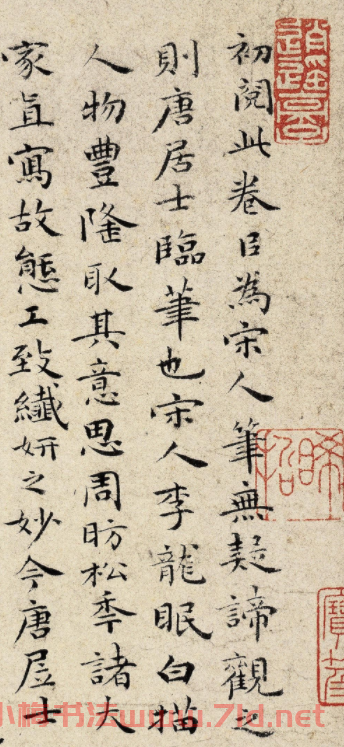 初閱此卷㠯為宋人筆無疑諦觀之
則唐居士臨筆也宋人李龍眠白描
人物豐隆取其意思周昉松秊諸大
家直寫故態工致纖妍之妙今唐居士
小楷书法www.7ld.net